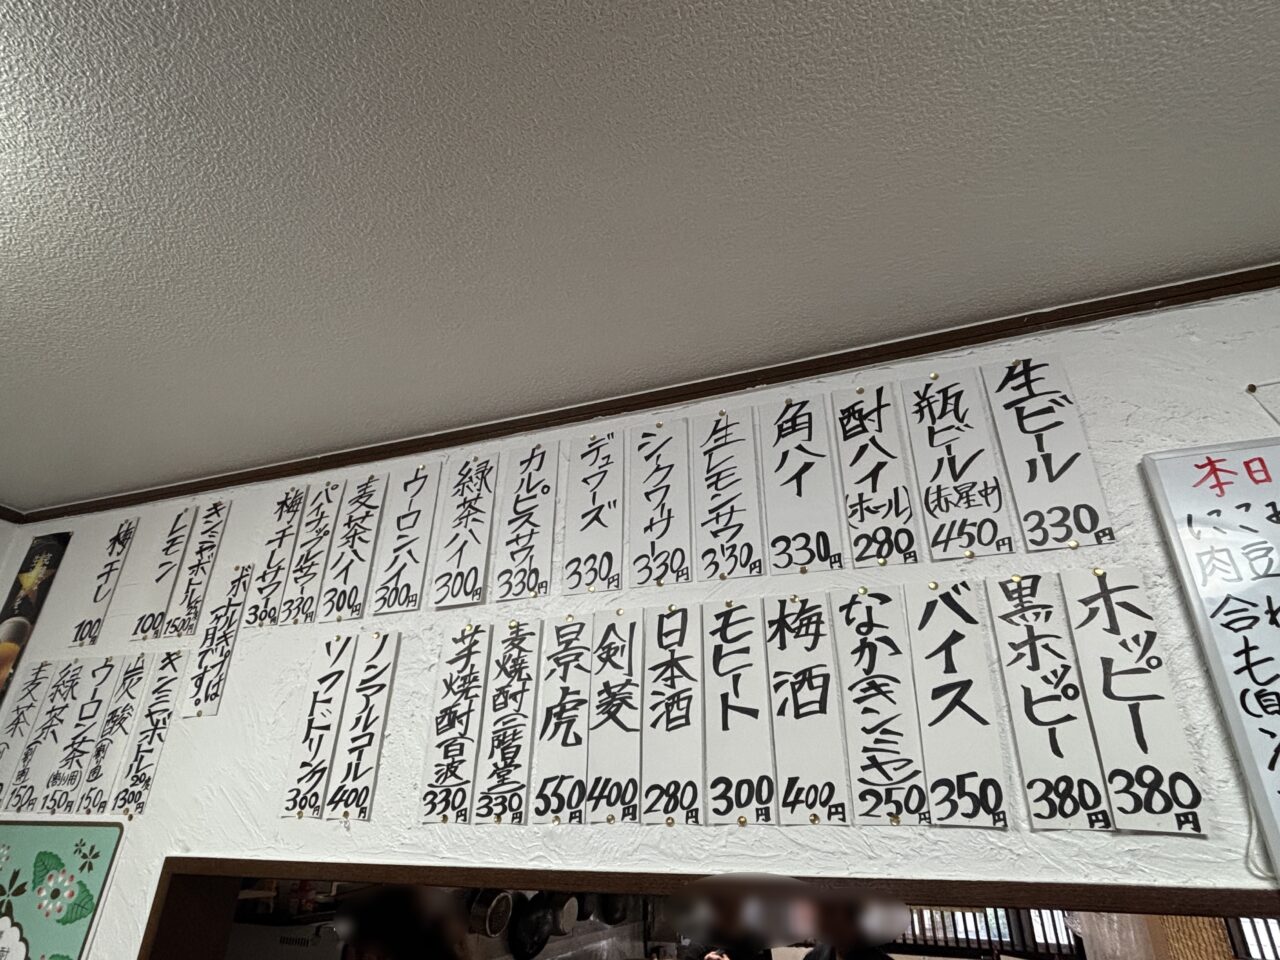 生ビール 330円
瓶ビール(赤星中) 450円
酎ハイ(ボール) 280円
角ハイ 330円
生レモンサワー 330円
シークワーサー 330円
デュワーズ 330円
カルピスサワー 330円
緑茶ハイ 300円
ウーロンハイ 300円
麦茶ハイ 300円
パイナップルサワー 330円
梅干しサワー 360円
ホッピー 380円
黒ホッピー 380円
バイス 350円
なか(キンミヤ) 250円
梅酒 400円
モヒート 300円
日本酒 280円
剣菱 400円
景虎 550円
麦焼酎(一暦堂) 330円
芋焼酎(百波) 330円
ノンアルコール 400円
ソフトドリンク 360円
ボトルキープは
ヶ月です。
キンミヤボトル 1500円
レモン 100円
梅干し 100円
キンミヤボトル 1300円
炭酸 150円
ウーロン茶(割り用) 150円
緑茶 150円
麦茶
本日
にこ
肉豆
合
も